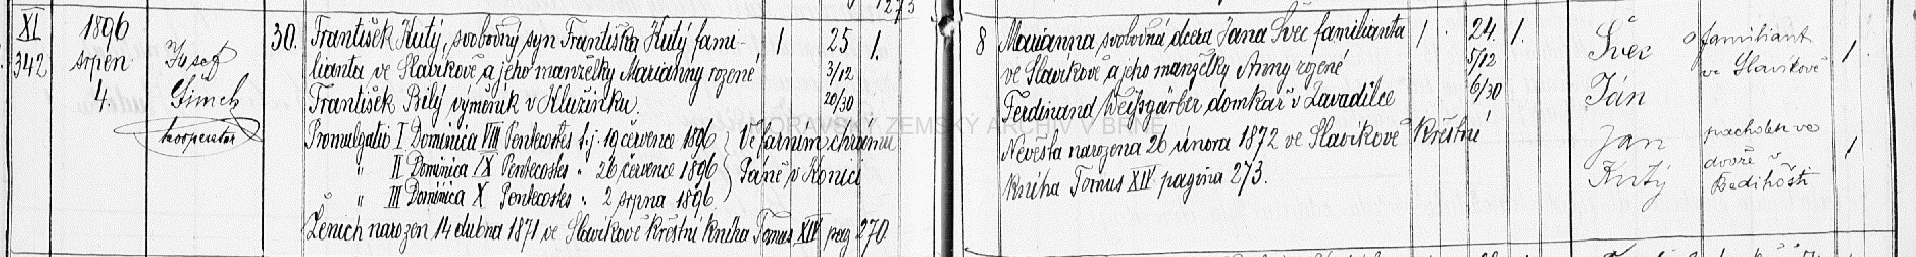 XI
342
1896
srpen
4.
Josef
Šimek
kooperator
30.
František Kutý, svobodný syn Františka Kutý fami-
lianta ve Slavíkově a jeho manželky Marianny rozené
František Bílý výměník v Kluzínku.
Promulgatio I Dominica VIII Pentecostes t.j. 19 července 1896
" II Dominica IX Pentecostes " 26 července 1896
" III Dominica X Pentecostes " 2 srpna 1896.
Ve farním chrámu
Páně v Konici
Ženich narozen 14 dubna 1871 ve Slavíkově Křestní Kniha Tomus XIV pag 270.
1
25
3/12
20/30
1.
8
Marianna svobodná dcera Jana Švec familianta
ve Slavíkově a jeho manželky Anny rozené
Ferdinand Weißgärber domkař v Zavadilce
Nevěsta narozena 26 února 1872 ve Slavíkově Křestní
Kniha Tomus XIV pagina 273.
1
24
5/12
6/30
1.
Švec
Ján
familiant
ve Slavíkově
1
Jan
Kutý
pacholek ve
dvoře v
Bedihošti
1
MORAVSKÝ ZEMSKÝ ARCHIV V BRNĚ